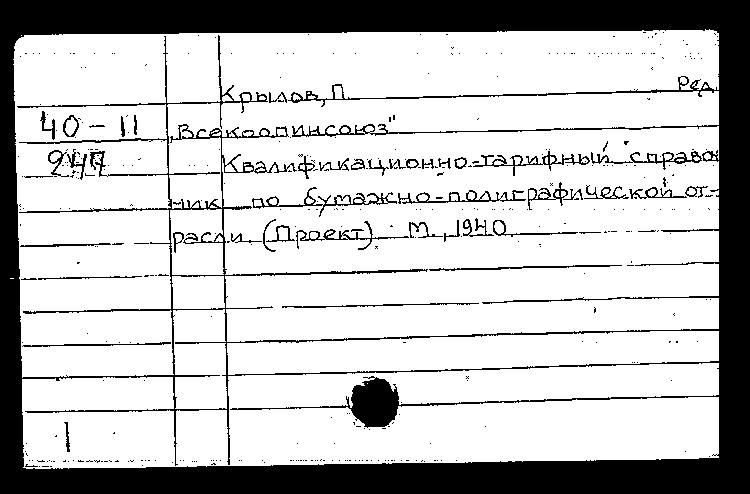 Крылов, П. Ред.
40-11
247
„Всекоопинсоюз"
Квалификационно-тарифный справоч
ник по бумажно-полиграфической от-
расли. (Проект). М., 1940
1